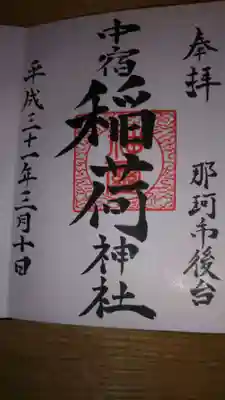 奉拝
那珂市後台
中宿稲荷神社
平成三十一年三月十日